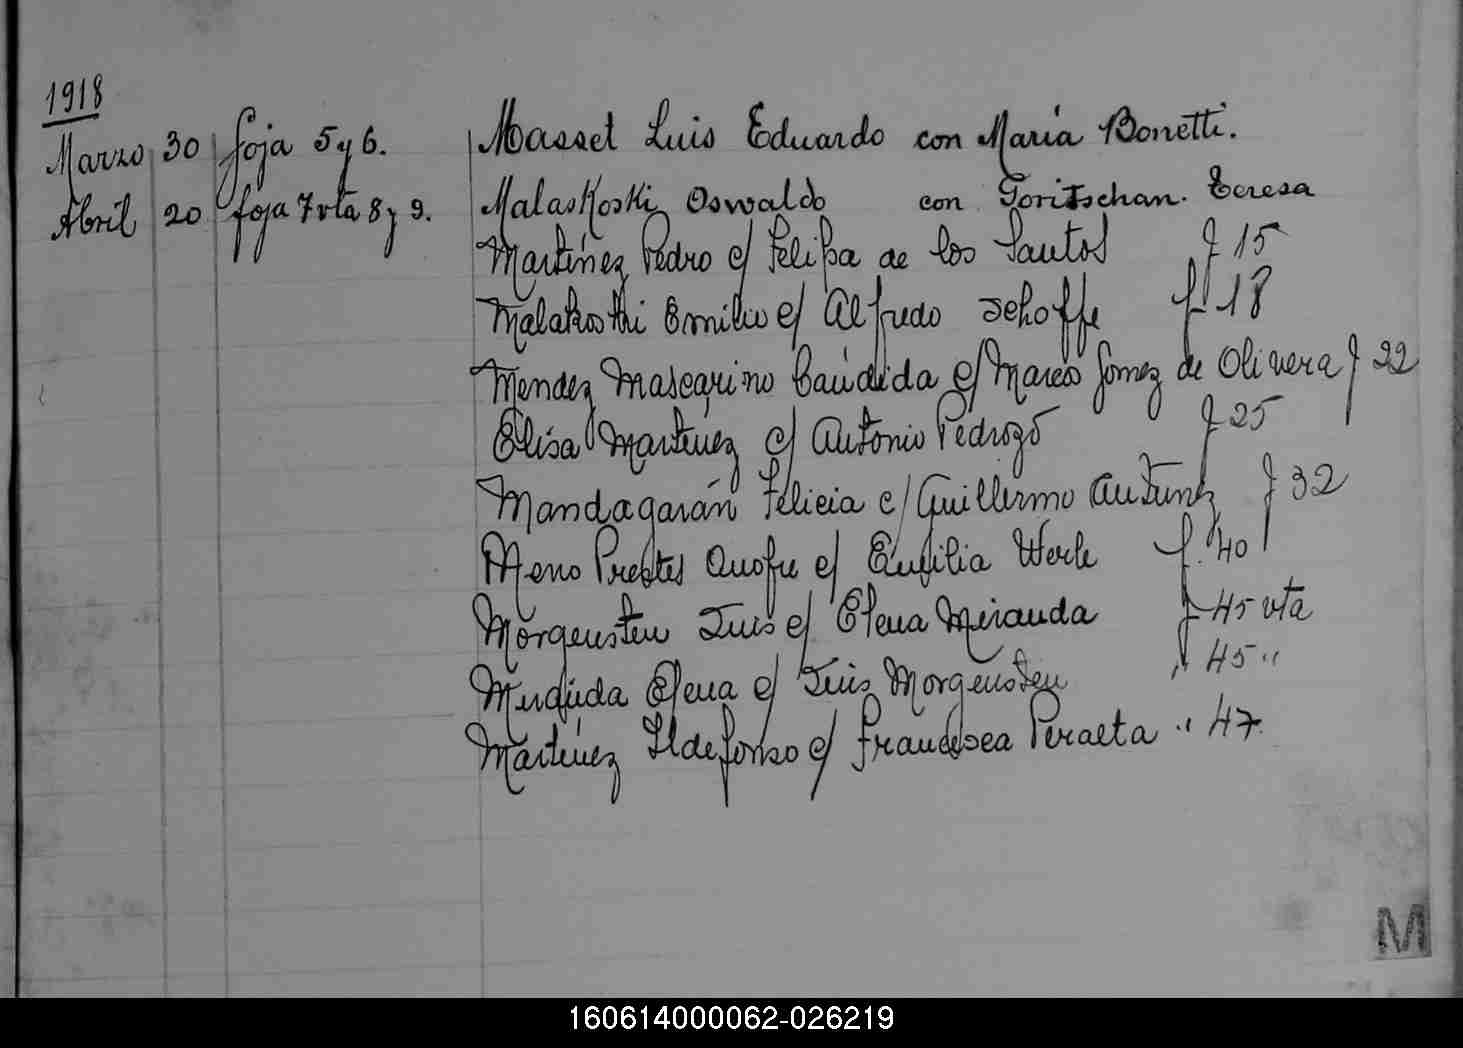 1918
Marzo 30 foja 5 y 6. Massel Luis Eduardo con María Bonetti.
Abril 20 foja 7 vta 8 y 9. Malaskoski Oswaldo con Toritschan. Teresa
Martínez Pedro c/ Felipa de los Santos f 15
Malakoski Emilio c/ Alfredo Schoffe f 18
Mendez Mascarino Cándida c/ Marcos Gomez de Olivera f 22
Elisa Martinez c/ Antonio Pedrozo f 25
Mandagarán Felicia c/ Guillermo Antunez f 32
Meno Prestes Onofre c/ Emilia Werle f. 40
Morgenstern Luis c/ Elena Miranda f 45 vta
Miranda Elena c/ Luis Morgenstern " 45 "
Martínez Ildefonso c/ Francisca Peralta " 47
M
160614000062-026219